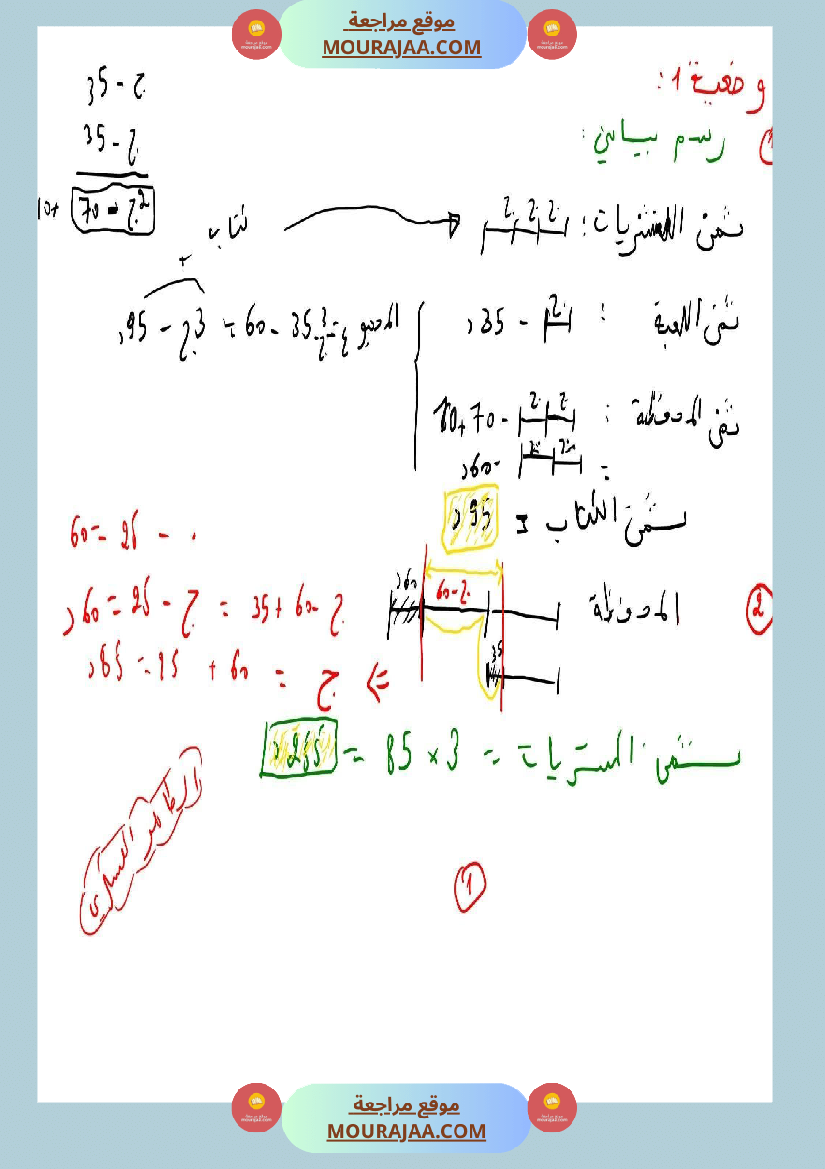 موقع مراجعة
MOURAJAA.COM
وضعية 1:
1 رسم بياني:
ج - 35د
ج - 35د
2ج - 70 +10
ثمن المشتريات: ج ج ج كتاب
ثمن اللعبة : ج - 35د
ثمن المحفظة : ج ج - 70+10
= ج ج - 60د
المجموع = 3ج - 35 - 60 = 3ج - 95د
+
ثمن الكتاب = 95د
2 المحفظة
60د ج-60
35
25 - . = 60
ج - 60 + 35 = ج - 25 = 60د
=> ج = 60 + 25 = 85د
ثمن المشتريات = 3 × 85 = 255د
1
موقع مراجعة
MOURAJAA.COM